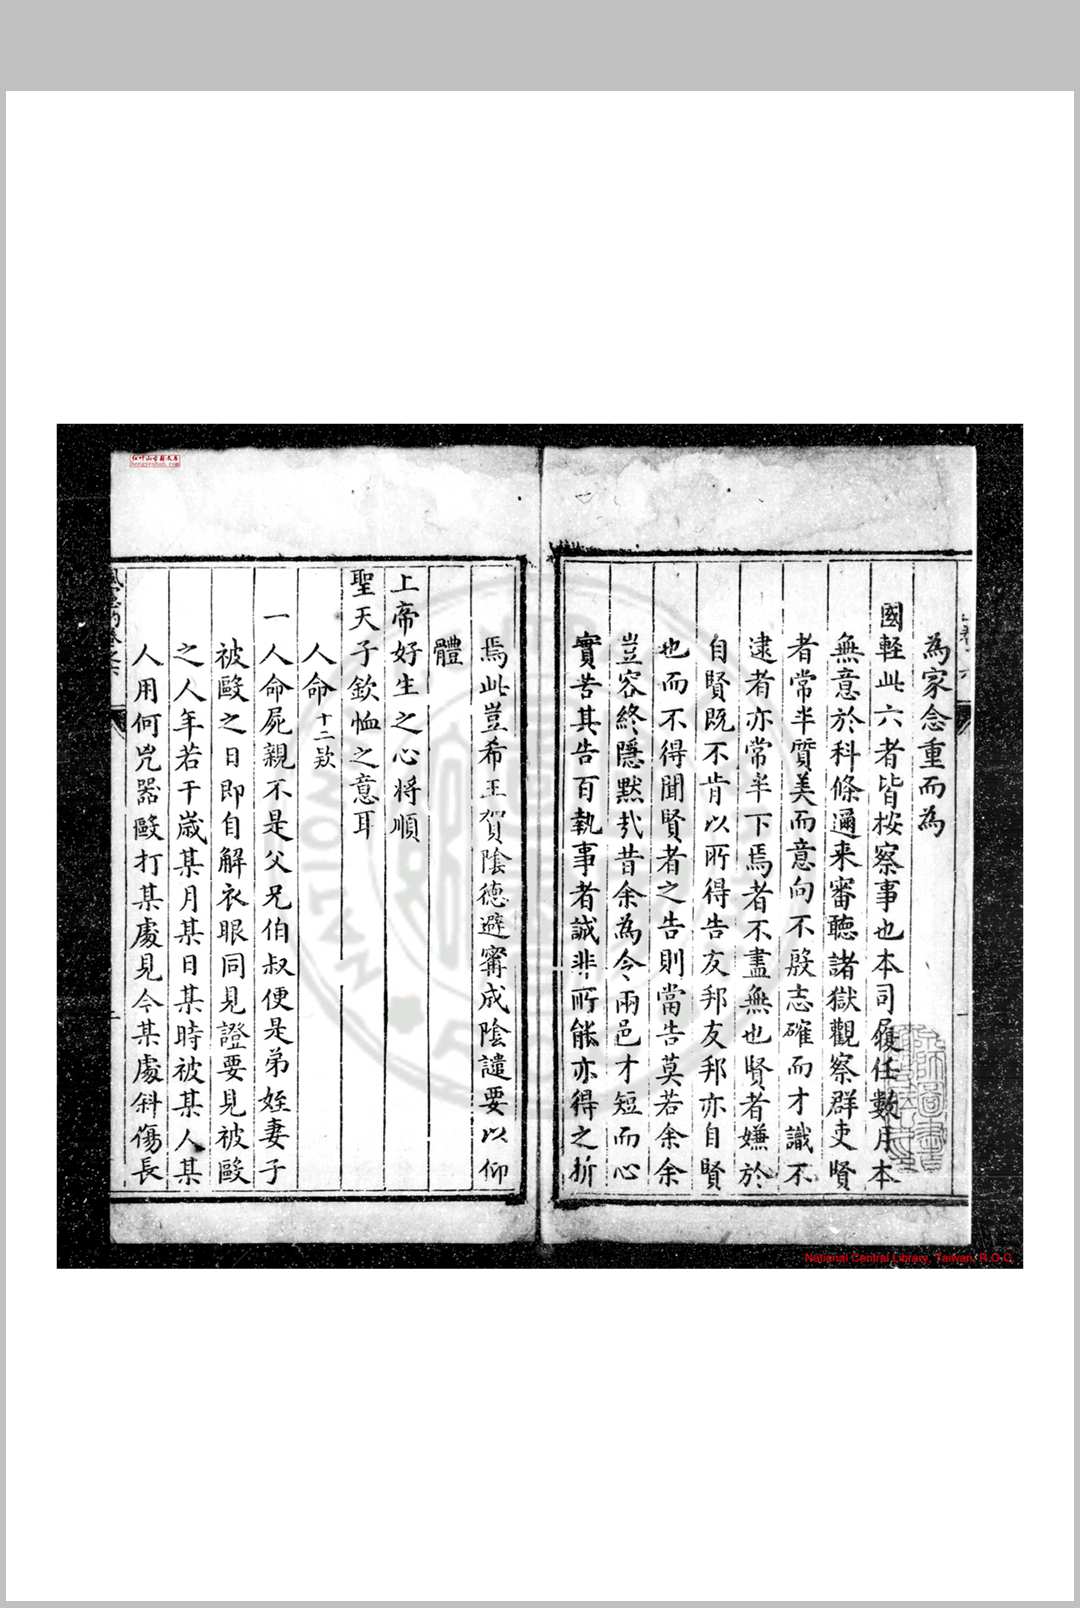 為家念重而為
國輕此六者皆按察事也本司履任數月本
無意於科條邇来審聽諸獄觀察群吏賢
者常半質美而意向不殷志確而才識不
逮者亦常半下焉者不盡無也賢者嫌於
自賢既不肯以所得告友邦友邦亦自賢
也而不得聞賢者之告則當告莫若余余
豈容終隱默㢤昔余為令兩邑才短而心
實苦其告百執事者誠非所能亦得之折
焉此豈希王賀陰德避甯成陰譴要以仰
體
上帝好生之心将順
聖天子欽恤之意耳
人命十二欵
一人命屍親不是父兄伯叔便是弟姪妻子
被毆之日即自解衣眼同見證要見被毆
之人年若干歲某月某日某時被某人某
人用何兇器毆打某處見今某處斜傷長
National Central Library, Taiwan, R.O.C